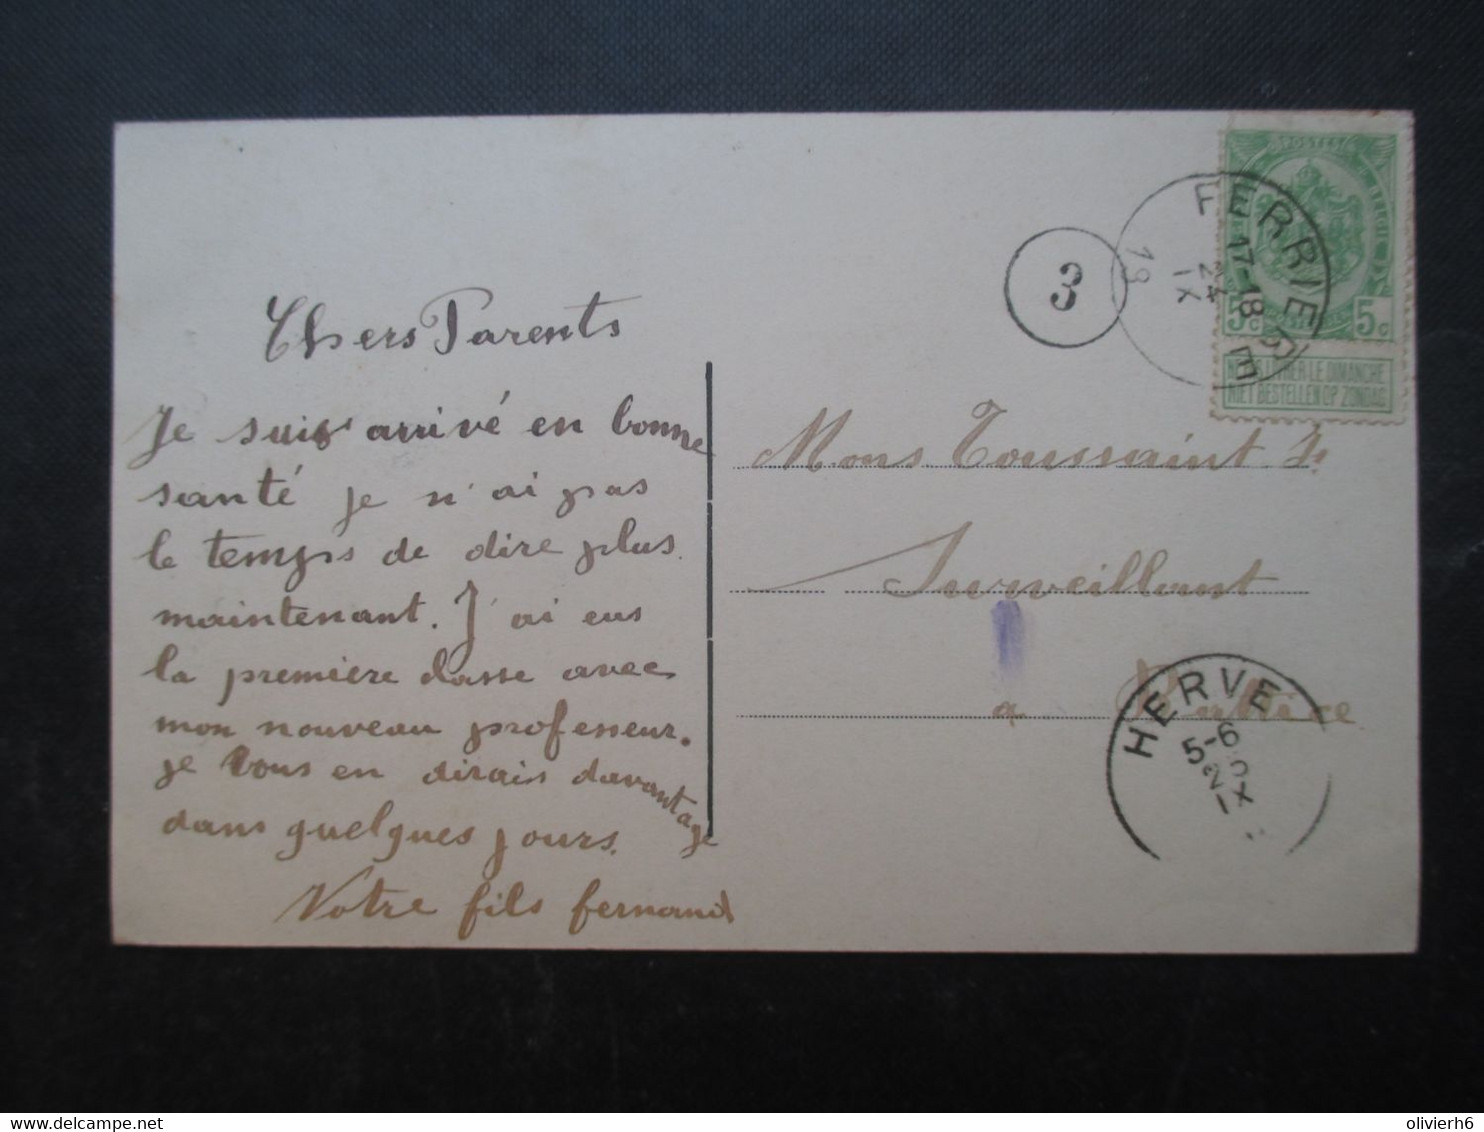 Chers Parents
Je suis arrivé en bonne
santé je n'ai pas
le temps de dire plus
maintenant. J'ai eus
la première classe avec
mon nouveau professeur.
je vous en dirais davantage
dans quelques jours.
Votre fils fernand
POSTES
5c 5c
NE PAS LIVRER LE DIMANCHE
NIET BESTELLEN OP ZONDAG
FERRIERE
17-18
24
IX
19
3
Mons Toussaint
Surveillant
a Battice
HERVE
5-6
25
IX
delcampe.net
olivierh6